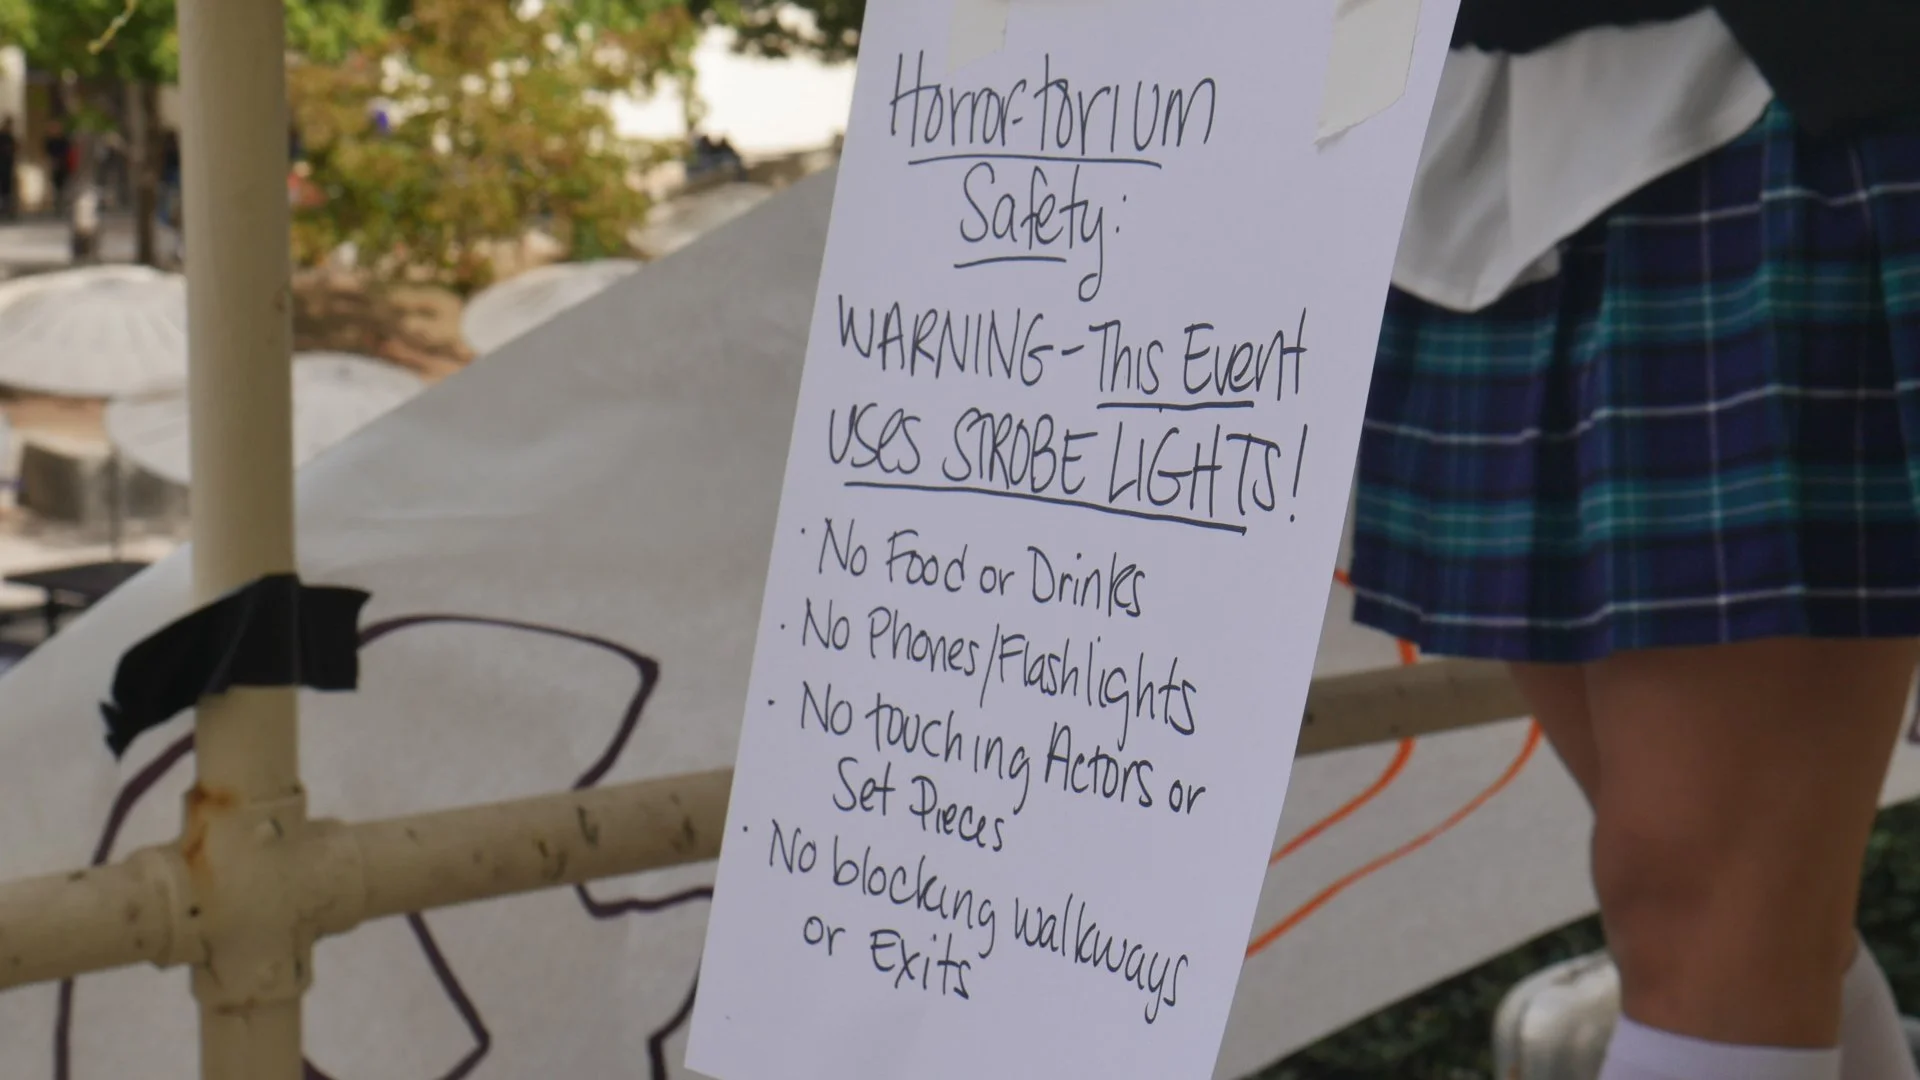 Horror-torium
Safety:
WARNING-This Event
USES STROBE LIGHTS!
· No Food or Drinks
· No Phones/Flashlights
· No touching Actors or
Set Pieces
· No blocking walkways
or Exits